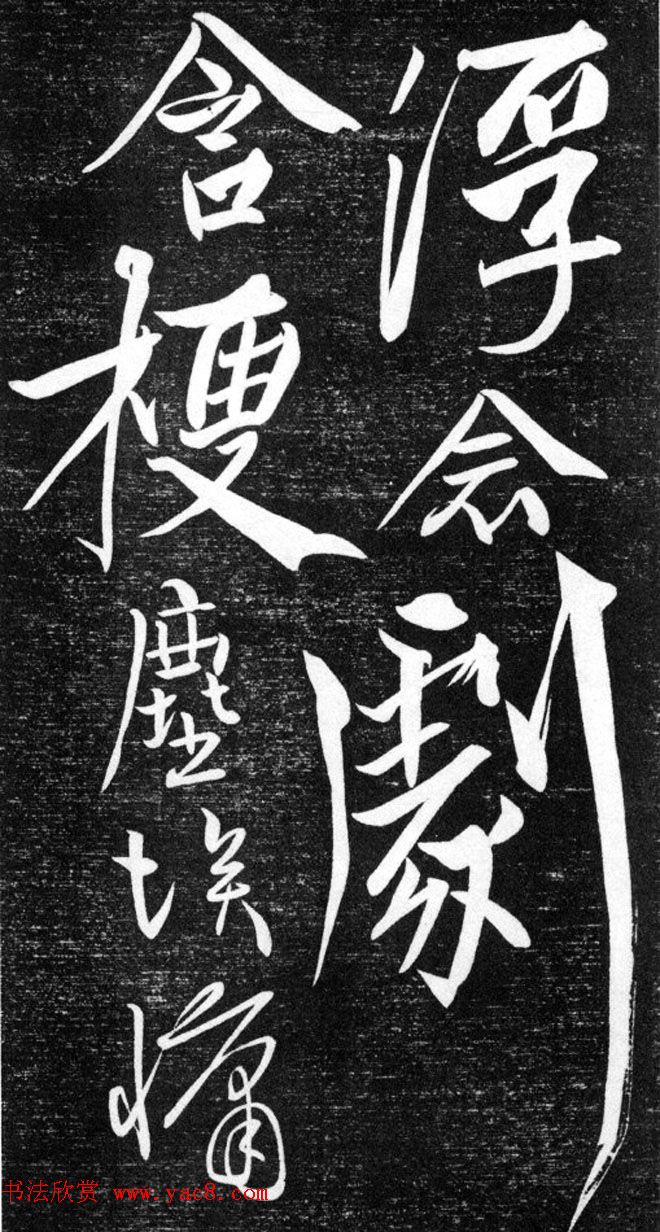 浮念劇
含梗塵埃
书法欣赏 www.yac8.com